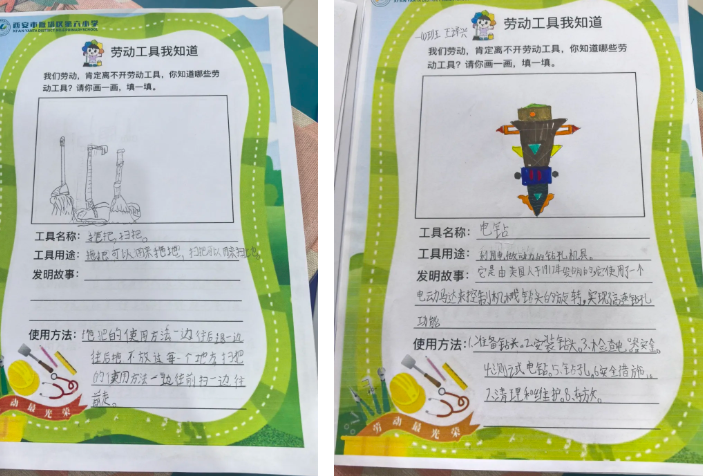 西安市曲江第六小学
劳动工具我知道
我们劳动，肯定离不开劳动工具，你知道哪些劳
动工具？请你画一画，填一填。
工具名称：拖把，扫把。
工具用途：拖把可以用来拖地，扫把可以用来扫地。
发明故事：
使用方法：拖把的使用方法一边往后退一边
往后拖不放过每一个地方扫把
的使用方法一边往前扫一边往
前走。
动最光荣
劳动工具我知道
我们劳动，肯定离不开劳动工具，你知道哪些劳
动工具？请你画一画，填一填。
工具名称：电钻
工具用途：利用电做动力的钻孔机具。
发明故事：它是由美国人于1912年发明的它使用了一个
电动马达来控制机械钻头的旋转，实现高速钻孔
功能
使用方法：1.准备钻头。2.安装钻头。3.检查电器安全。
4.测试电钻。5.钻孔。6.安全措施。
7.清理和维护。8.存放。
劳动最光荣